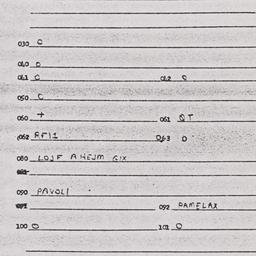 030 0
040 0
041 0 042 0
050 0
060 + 061 QT
062 RF11 063 0
080 LOJF AHEJM GIX
090 PAVOLI
091 092 PAMELAX
100 0 101 0